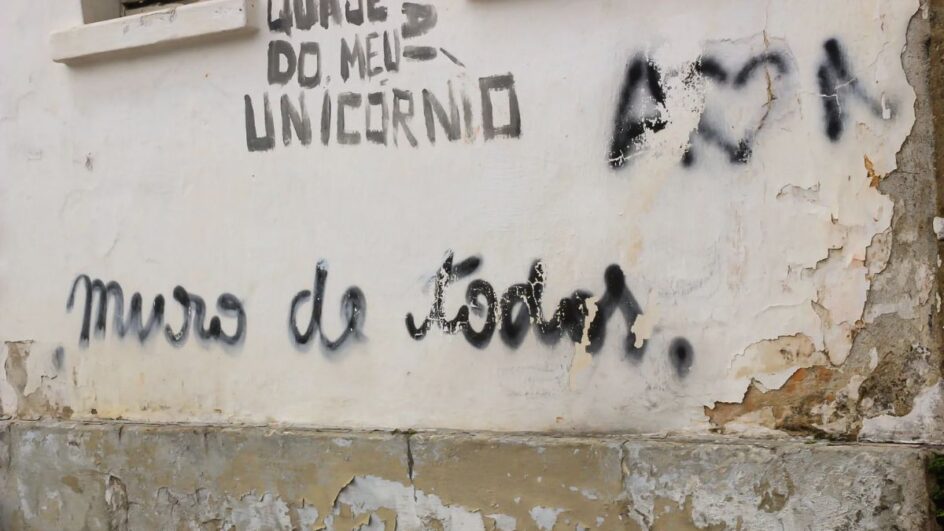 QUASE
DO MEU
UNICÓRNIO
muro de todos.